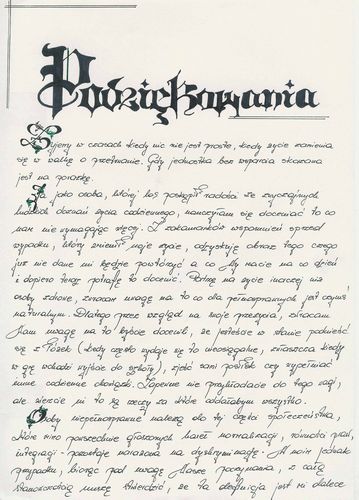 Podziękowania
Żyjemy w czasach kiedy nic nie jest proste, kiedy życie zamienia
się w walkę o przetrwanie. Gdy jednostka bez wsparcia skazana
jest na porażkę.
Ja jako osoba, której los poskąpił radości ze zwyczajnych
ludzkich doznań życia codziennego, nauczyłam się doceniać to co
nam nie wymagając więcej. Z zakamarków wspomnień sprzed
wypadku, który zmienił moje życie, odzyskuję obrazy tego czego
już nie dane mi będzie powtórzyć a co Wy macie na co dzień
i dopiero teraz potrafię to docenić. Patrzę na życie inaczej niż
osoby zdrowe, zwracam uwagę na to co dla pełnosprawnych jest czymś
naturalnym. Dlatego przez wzgląd na moje przeżycia, zwracam
Wam uwagę na to byście docenili, że jesteście w stanie podnieść
się z łóżek (kiedy często wydaje się to nieosiągalne, zwłaszcza kiedy
w grę wchodzi wyjście do szkoły), zjeść sami posiłek czy wypełniać
inne codzienne obowiązki. Zapewne nie przykładacie do tego wagi,
ale wierzcie mi to są rzeczy za które oddałabym wszystko.
Osoby niepełnosprawne należą do tej części społeczeństwa,
które mimo powszechnie głoszonych haseł normalizacji, równości praw,
integracji - pozostaje narażona na dyskryminację. A moim jednak
przypadku, biorąc pod uwagę Wasze poczynania, z całą
stanowczością muszę stwierdzić, że ta dewiacja jest mi dalece